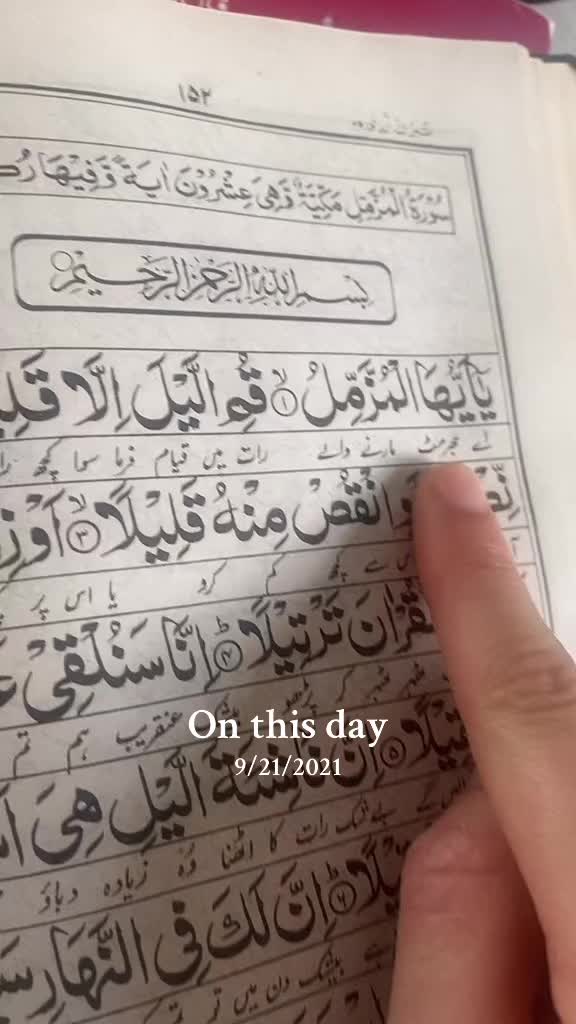 ١٥٢
سُوْرَةُ الْمُزَّمِّلِ مَكِّيَّةٌ وَّهِيَ عِشْرُوْنَ اٰيَةً وَّفِيْهَا
بِسْمِ اللّٰهِ الرَّحْمٰنِ الرَّحِيْمِ
يٰۤاَيُّهَا الْمُزَّمِّلُ ۙ﴿١﴾ قُمِ الَّيْلَ اِلَّا
اے جھرمٹ مارنے والے رات میں قیام فرما سوا کچھ
وِ انْقُصْ مِنْهُ قَلِيْلًا ۙ﴿٣﴾ اَوْ
سے کچھ کم کرو یا اس پر
الْقُرْاٰنَ تَرْتِيْلًا ؕ﴿٤﴾ اِنَّا سَنُلْقِيْ
ٹھہر ٹھہر کر پڑھو عنقریب ہم تم
﴿٥﴾ اِنَّ نَاشِئَةَ الَّيْلِ هِيَ
بےشک رات کا اٹھنا وہ زیادہ دباؤ
﴿٦﴾ اِنَّ لَكَ فِي النَّهَارِ
بیشک دن میں تو
On this day
9/21/2021